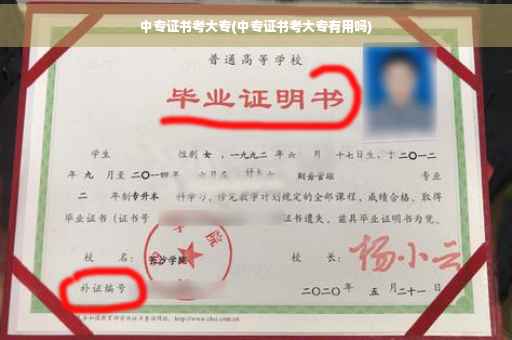 中专证书考大专(中专证书考大专有用吗)
普通高等学校
毕业证明书
学生 性别 女，一九九二年 六 月 十七日生，于二〇一二
年 九 月至二〇一四年 六月在 财务管理 专业
二 年制专升本 科学习，修完教学计划规定的全部课程，成绩合格，取得
毕业证书（证书号 证书遗失，兹具毕业证明书为凭。
校 名： 长沙学院 校 长： 杨小云
补证编号 二〇二〇年 五 月 二十一日